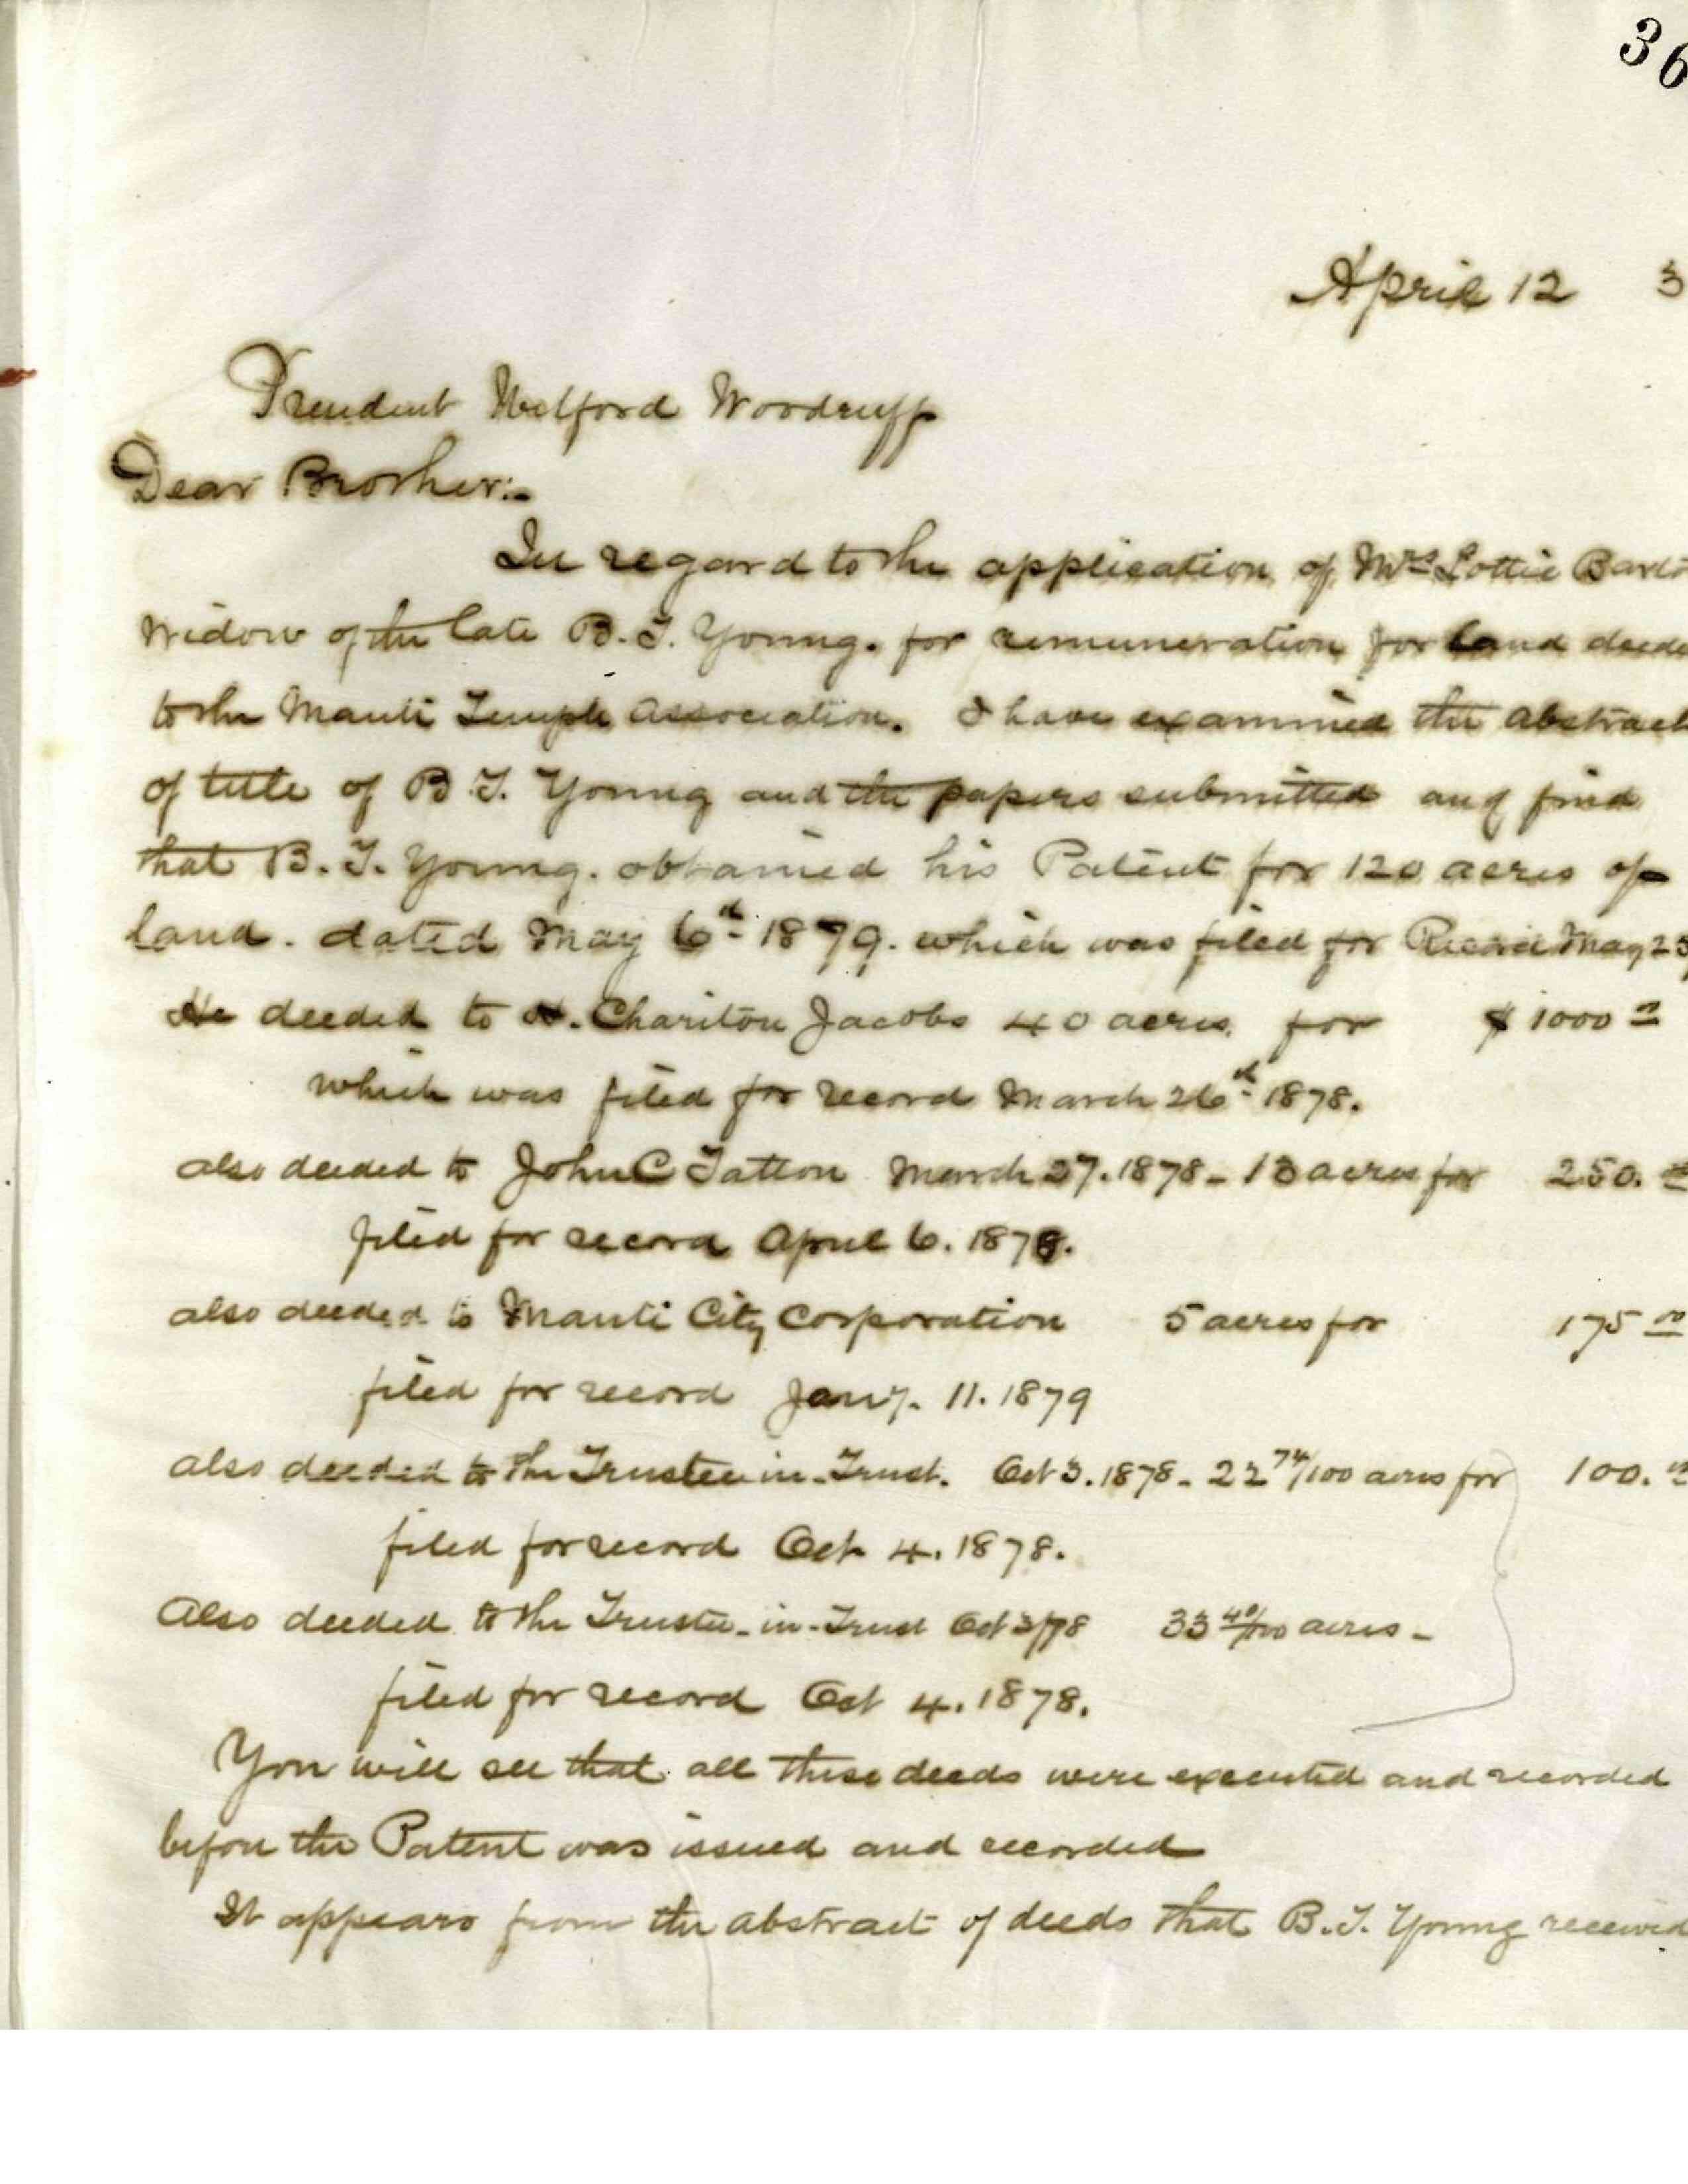 36
April 12 3
President Wilford Woodruff
Dear Brother:-
In regard to the application of Mrs Lottie
Widow of the late B. Y. Young. for remuneration for land deede
to the Manti Temple Association. I have examined the abstract
of title of B. Y. Young and the papers submitted and find
that B. Y. Young. obtained his Patent for 120 acres of
land. dated May 6th 1879. which was filed for Record May 23
He deeded to H. Chariton Jacobs 40 acres for $1000 00
which was filed for record March 26th 1878.
also deeded to John C Tatton March 27. 1878 - 13 acres for 250. 00
filed for record April 6. 1878.
also deeded to Manti City Corporation 5 acres for 175 00
filed for record Jany. 11. 1879
also deeded to the Trustee-in-Trust. Oct 3. 1878 - 22 74/100 acres for 100. 00
filed for record Oct 4. 1878.
Also deeded to the Trustee-in-Trust Oct 3/78 33 40/100 acres -
filed for record Oct 4. 1878.
You will see that all these deeds were executed and recorded
before the Patent was issued and recorded
It appears from the abstract of deeds that B. Y. Young received